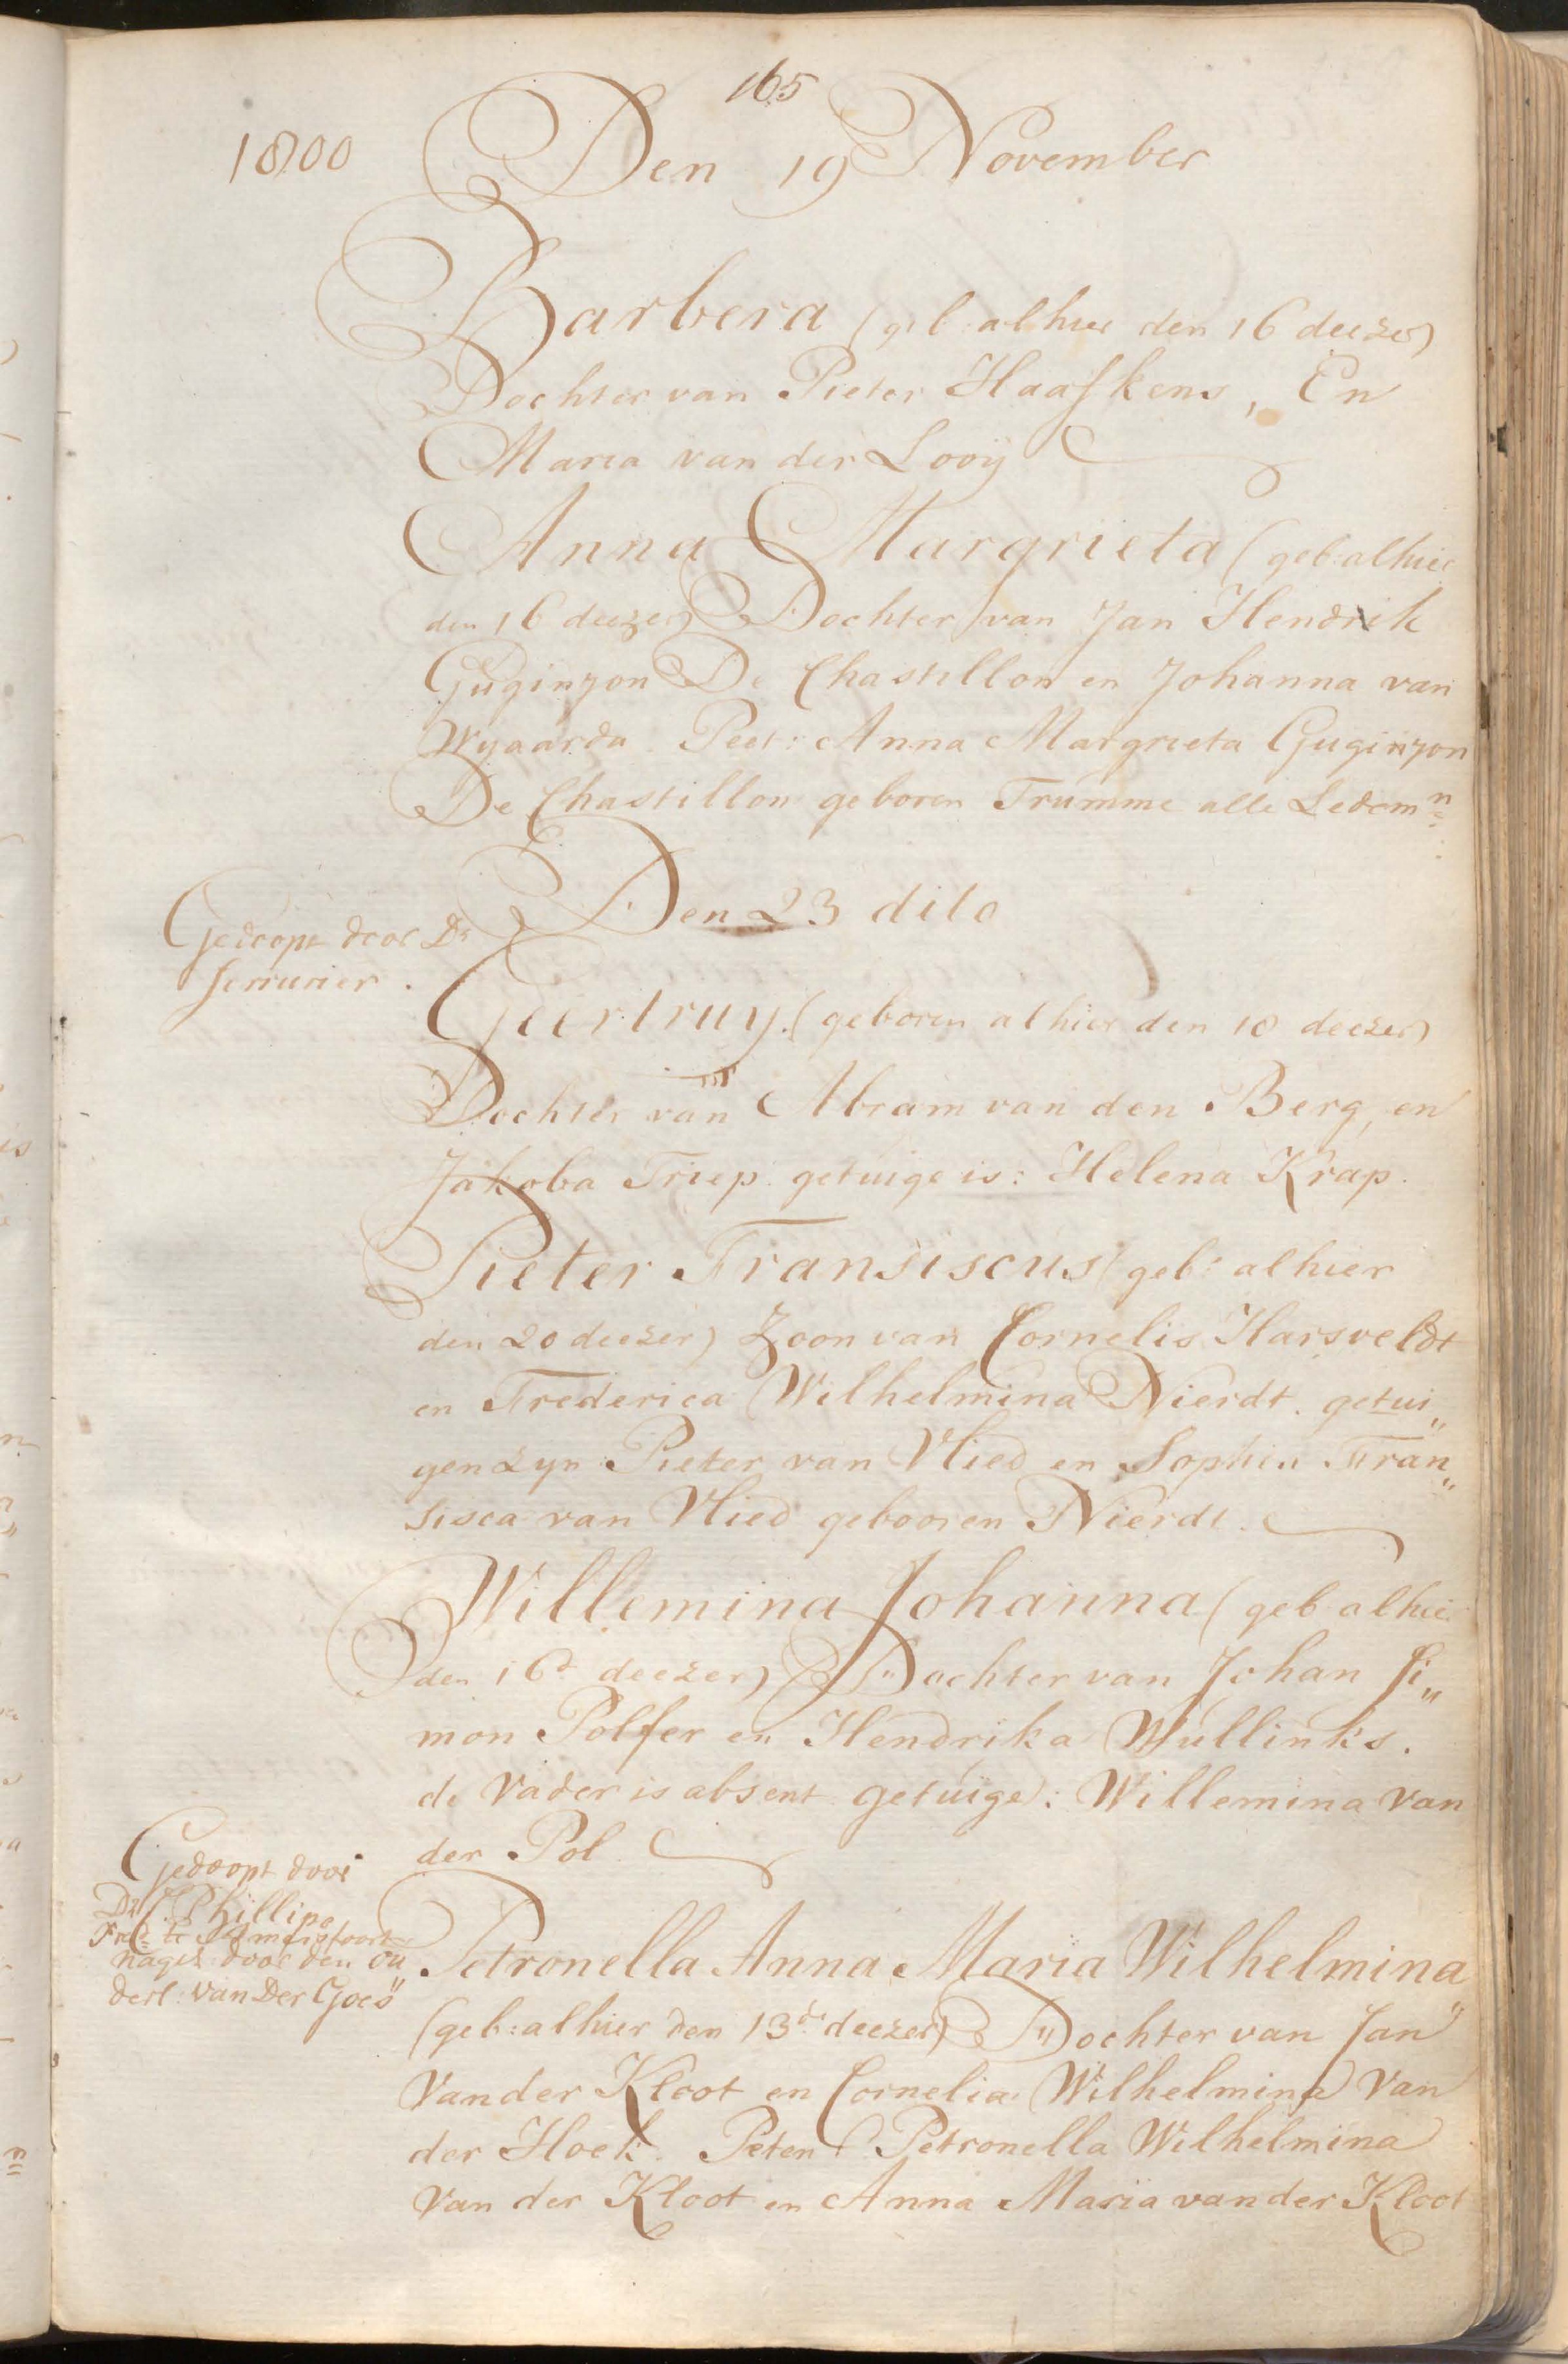 165
1800
Den 19 November
Barbera (geb: alhier den 16 deezer)
Dochter van Pieter Haaskens, En
Maria van der Looÿ
Anna Margrieta (geb: alhier
den 16 deezer) Dochter van Jan Hendrik
Guginyon De Chastillon en Johanna van
Wyaarda. Peet: Anna Margrieta Guginyon
De Chastillon geboren Trumme alle Ledemn:
Den 23 dito
Gedoopt door Ds
Serrurier.
Geertruy. (geboren alhier den 18 deezer)
Dochter van Abram van den Berg, en
Jakoba Triep. getuige is: Helena Krap.
Pieter Fransiscus (geb: alhier
den 20 deezer) Zoon van Cornelis Harsveldt
en Frederica Wilhelmina Nierdt. getui„
gen zyn Pieter van Vlied en Sophia Fran„
sisca van Vlied gebooren Nierdt.
Willemina Johanna (geb: alhier
den 16d deezer) Dochter van Johan Si„
mon Polser en Hendrika Wullinks.
de Vader is absent getuige: Willemina van
der Pol
Gedoopt door
Ds Phillips
Pred: te Amersfoort
nagez: door den ou
derl: van Der Goes
Petronella Anna Maria Wilhelmina
(geb: alhier den 13de deezer) Dochter van Jan
Van der Kloot en Cornelia Wilhelmina Van
der Hoek. Peten Petronella Wilhelmina
Van der Kloot en Anna Maria van der Kloot